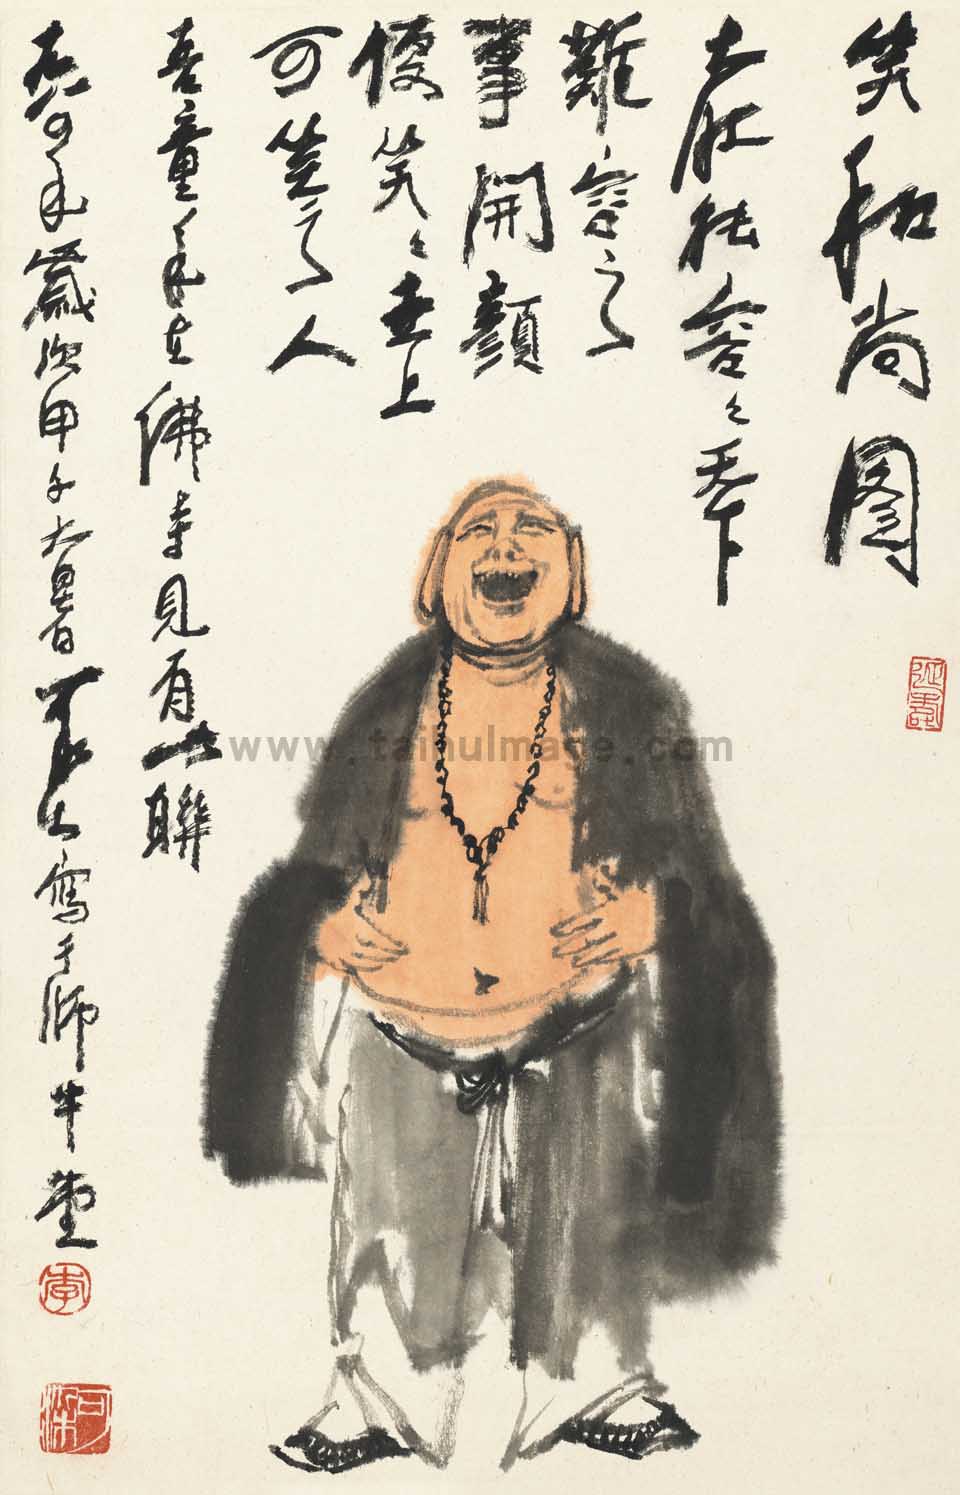 笑和尚图
大肚能容々天下
難容之
事開顔
便笑々世上
可笑之人
吾童年在佛寺見有此聯
歲次甲子大暑 可染寫于師牛堂
李
可染
www.taihuImage.com